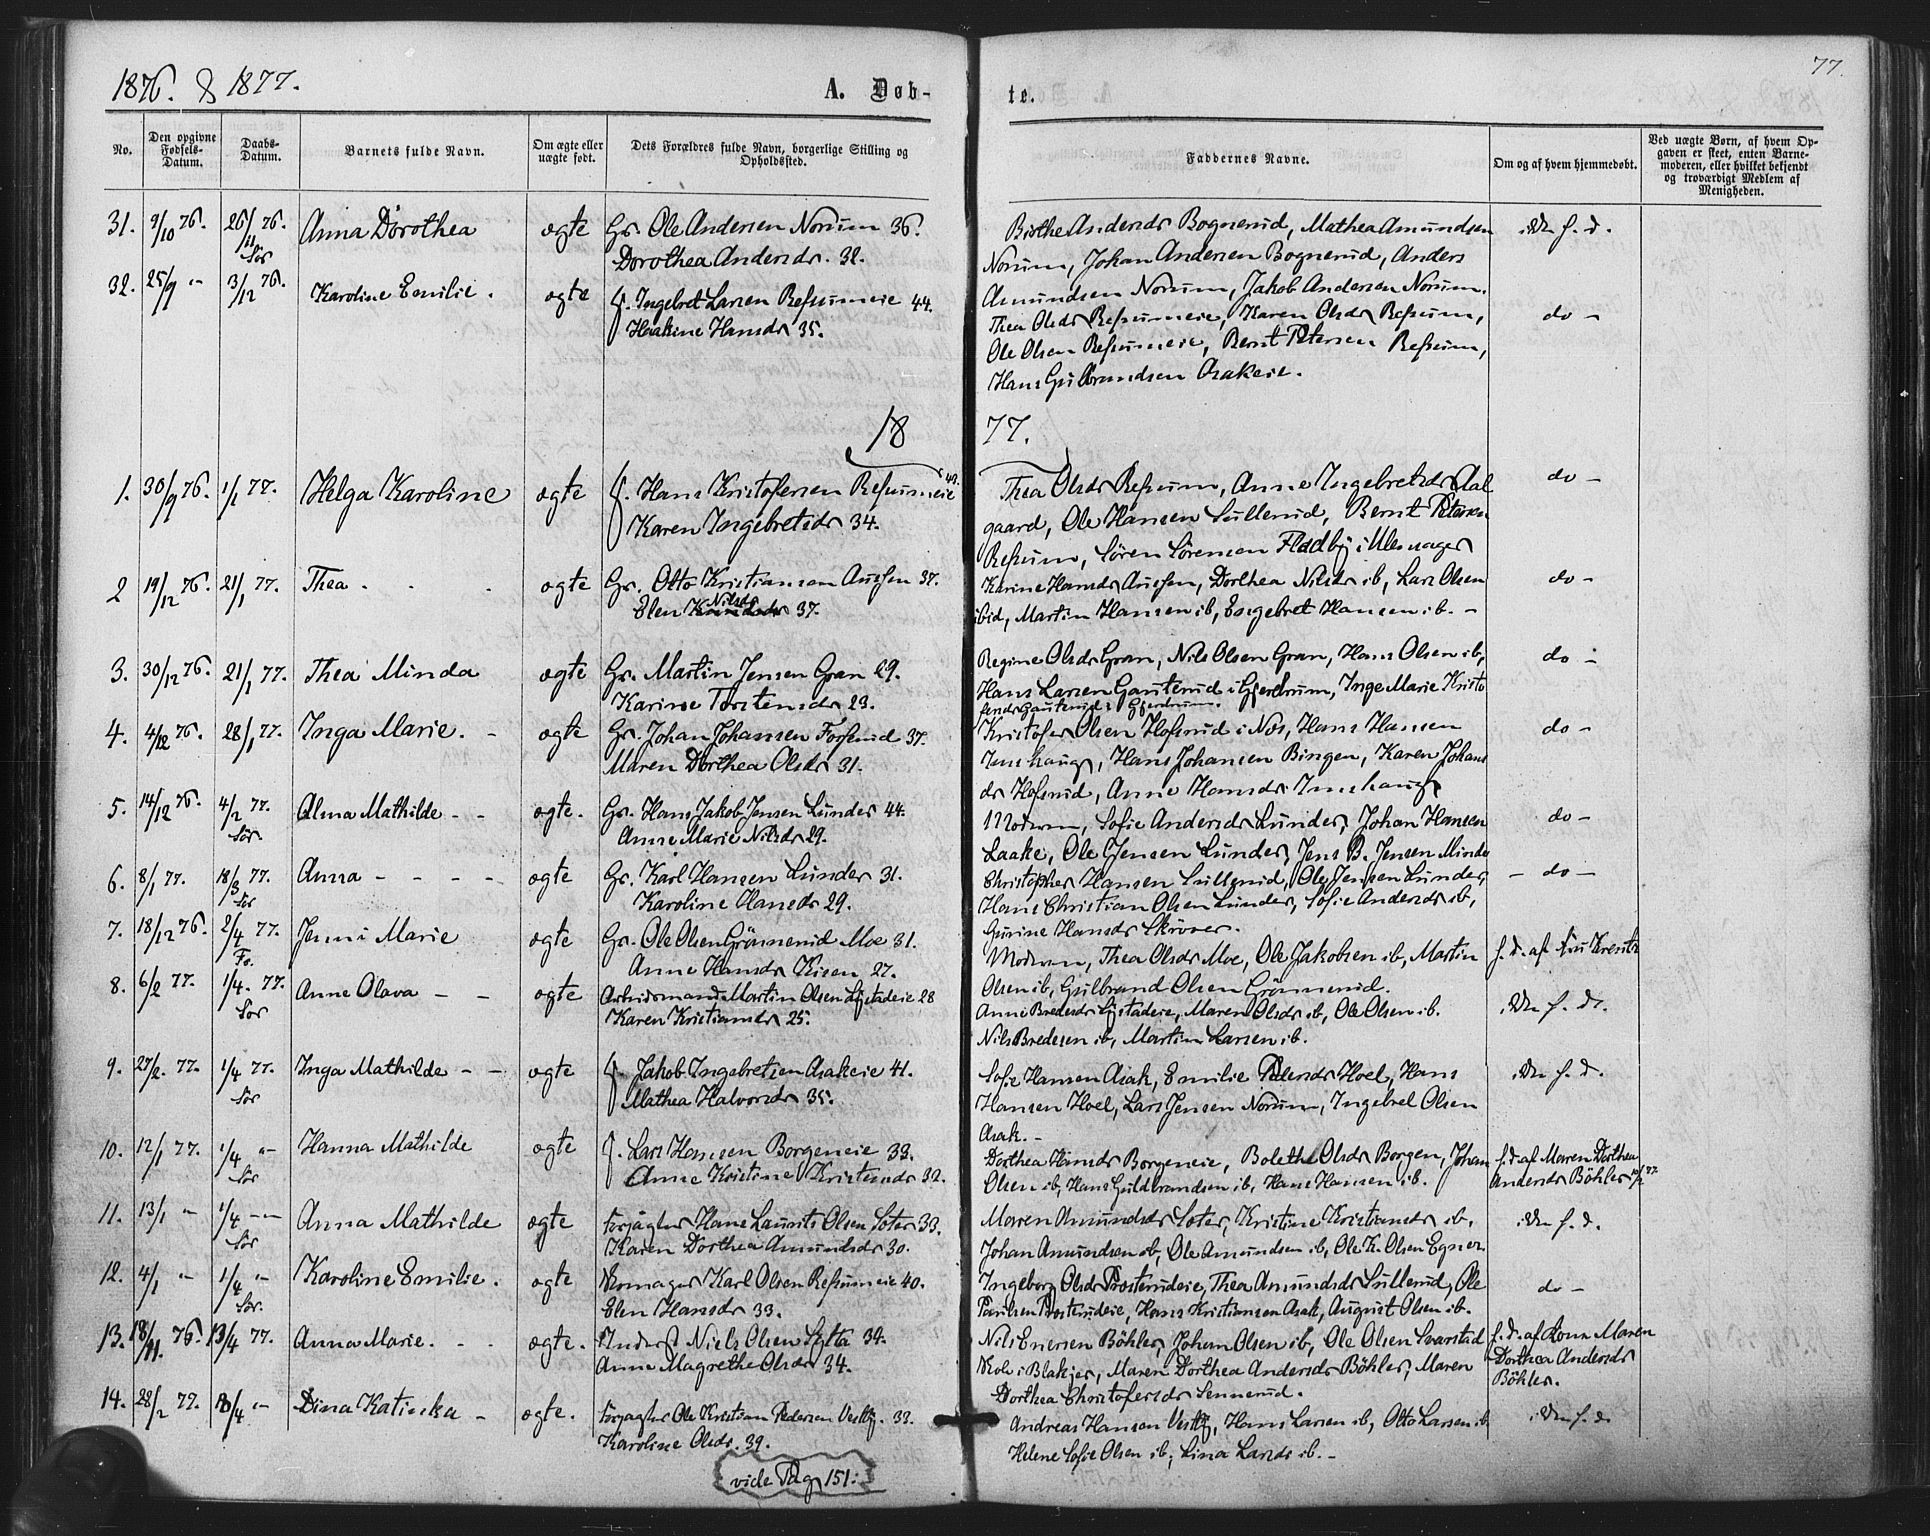 1876. & 1877.
A. Døb-
te.
77.
No.
Den opgivne Fødsels-Datum.
Daabs-Datum.
Barnets fulde Navn.
Om ægte eller uægte født.
Dets Forældres fulde Navn, borgerlige Stilling og Opholdssted.
Faddernes Navne.
Om og af hvem hjemmedøbt.
Ved uægte Børn, af hvem Opgaven er skeet, enten Barnemoderen, eller hvilket bekjendt og troværdigt Medlem af Menigheden.
31. 9/10 76. 26/11 76. Sør Anna Dorothea ægte Gr. Ole Andersen Norum 36.
Dorothea Andersdr. 32.
Birthe Andersdr Bognerud, Mathea Amundsen
Norum, Johan Andersen Bognerud, Anders
Amundsen Norum, Jakob Andersen Norum.
32. 25/9 " 3/12 76. Karoline Emilie. ægte f. Ingebret Larsen Refsumeie 44.
Haakine Hansdr 35.
Thea Olsdr Refsumeie, Karen Olsdr Refsum, do -
Ole Olsen Refsumeie, Bernt Petersen Refsum,
Hans Gulbrandsen Asakeie.
1877.
1. 30/9 76. 1/1 77. Helga Karoline ægte f. Hans Kristofersen Refsumeie 40.
Karen Ingebretsdr 34.
Thea Olsdr Refsum, Anne Ingebretsdr Aal do -
gaard, Ole Hansen Sullerud, Bernt Petersen
Refsum, Sören Sörensen Fladby i Ulensager
2 19/12 76. 21/1 77. Thea ægte Gr. Otto Kristiansen Aussen 37.
Elen Nilsdr 37.
Karine Hansdr Aussen, Dorthea Nilsdr ib, Lars Olsen do -
ibid, Martin Hansen ib, Engebret Hansen ib. -
3. 30/12 76. 21/1 77. Thea Minda ægte Gr. Martin Jensen Gran 29.
Karine Torstensdr 23.
Regine Olsdr Gran, Nils Olsen Gran, Hans Olsen ib, do -
Hans Larsen Gauterud i Gjerdrum, Inge Marie Kristo
fersdr Gauterud i Gjerdrum.
4. 4/12 76. 28/1 77. Inga Marie. - ægte Gr. Johan Johansen Forserud 37.
Maren Dorthea Olsdr 31.
Kristofer Olsen Hofsrud i Næs, Hans Hansen do -
Imshaug, Hans Johansen Bingen, Karen Johans
dr Hofsrud, Anne Hansdr Imshaug
5. 14/12 76. 4/2 77. Sör. Alma Mathilde - - ægte. Gr. Hans Jakob Jensen Lunder 44.
Anne Marie Nilsdr 29.
Modren, Sofie Andersdr Lunder, Johan Hansen do -
Laake, Ole Jensen Lunder, Jens B. Jensen Minde
6. 8/1 77. 18/3 77. Sör Anna - - - - ægte Gr. Karl Hansen Lunder 31.
Karoline Hansdr 29.
Christopher Hansen Sullerud, Ole Jensen Lunder, - do -
Hans Christian Olsen Lunder, Sofie Andersdr ib,
Gurine Hansdr Skröver.
7. 18/12 76. 2/4 77. Fr. Jenni Marie ægte Gr. Ole Olsen Grönnerud Moe 31.
Anne Hansdr Kisen 27.
Modren, Thea Olsdr Moe, Ole Jakobsen ib, Martin f. d. af Fru Krentz
Olsen ib, Gulbrand Olsen Grönnerud.
8. 6/2 77. 1/4. 77. Sör Anne Olava - - ægte Arbeidsmand Martin Olsen Lystadeie 28
Karen Kristiansdr 25.
Anne Bredesdr Lystadeie, Maren Olsdr ib, Ole Olsen ib.
Nils Bredesen ib, Martin Larsen ib.
9. 27/2. 77. 1/4 77. Sör Inga Mathilde - - ægte f. Jakob Ingebretsen Asakeie 41.
Mathea Halvorsdr 35.
Sofie Hansen Asak, Emilie Pedersdr Hoel, Hans
Hansen Hoel, Lars Jensen Norum, Ingebret Olsen
Asak. -
10. 12/1 77. 1/4 " Sör Hanna Mathilde ægte f. Lars Hansen Borgeneie 33.
Anne Kristine Kristensdr 32.
Dorthea Hansdr Borgeneie, Bolethe Olsdr Borgen, Johan f. d. af Maren Dorthea
Olsen ib, Hans Guldbrandsen ib, Hans Hansen ib. Andersdr Böhler
11. 13/1 " 1/4 " Sör Anna Mathilde ægte Forpagter Hans Laurits Olsen Soter 33.
Karen Dorthea Amundsdr 30.
Maren Amundsdr Soter, Kristine Kristiansdr ib,
Johan Amundsen ib, Ole Amundsen ib, Ole K. Olsen Egner.
12. 4/1 " 1/4 " Sör. Karoline Emilie. ægte Skomager Karl Olsen Refsumeie 40.
Elen Hansdr 33.
Ingeborg Olsdr Prosterudeie, Thea Amundsdr Sullerud, Ole do -
Paulsen Prosterudeie, Hans Kristiansen Asak, August Olsen ib.
13. 18/11. 76. 13/4 77. Anna Marie. ægte. Inderst Niels Olsen Sylta 34.
Anne Magrethe Olsdr 34.
Nils Enersen Böhler, Johan Olsen ib, Ole Olsen Svarstad f. d. af Kone Maren
Skole i Blakjer, Maren Dorthea Andersdr Böhler, Maren Dorthea Andersdr
Dorthea Christofersdr Sennerud. Böhler.
14. 28/2 77. 8/4 " Dina Katinka - ægte. Forpagter Ole Kristian Pedersen Vestby. 33.
Karoline Olsdr. 39.
Andreas Hansen Vestby, Hans Larsen ib, Otto Larsen ib
Helene Sofie Olsen ib, Lina Larsdr ib. -
vide Pag 151: